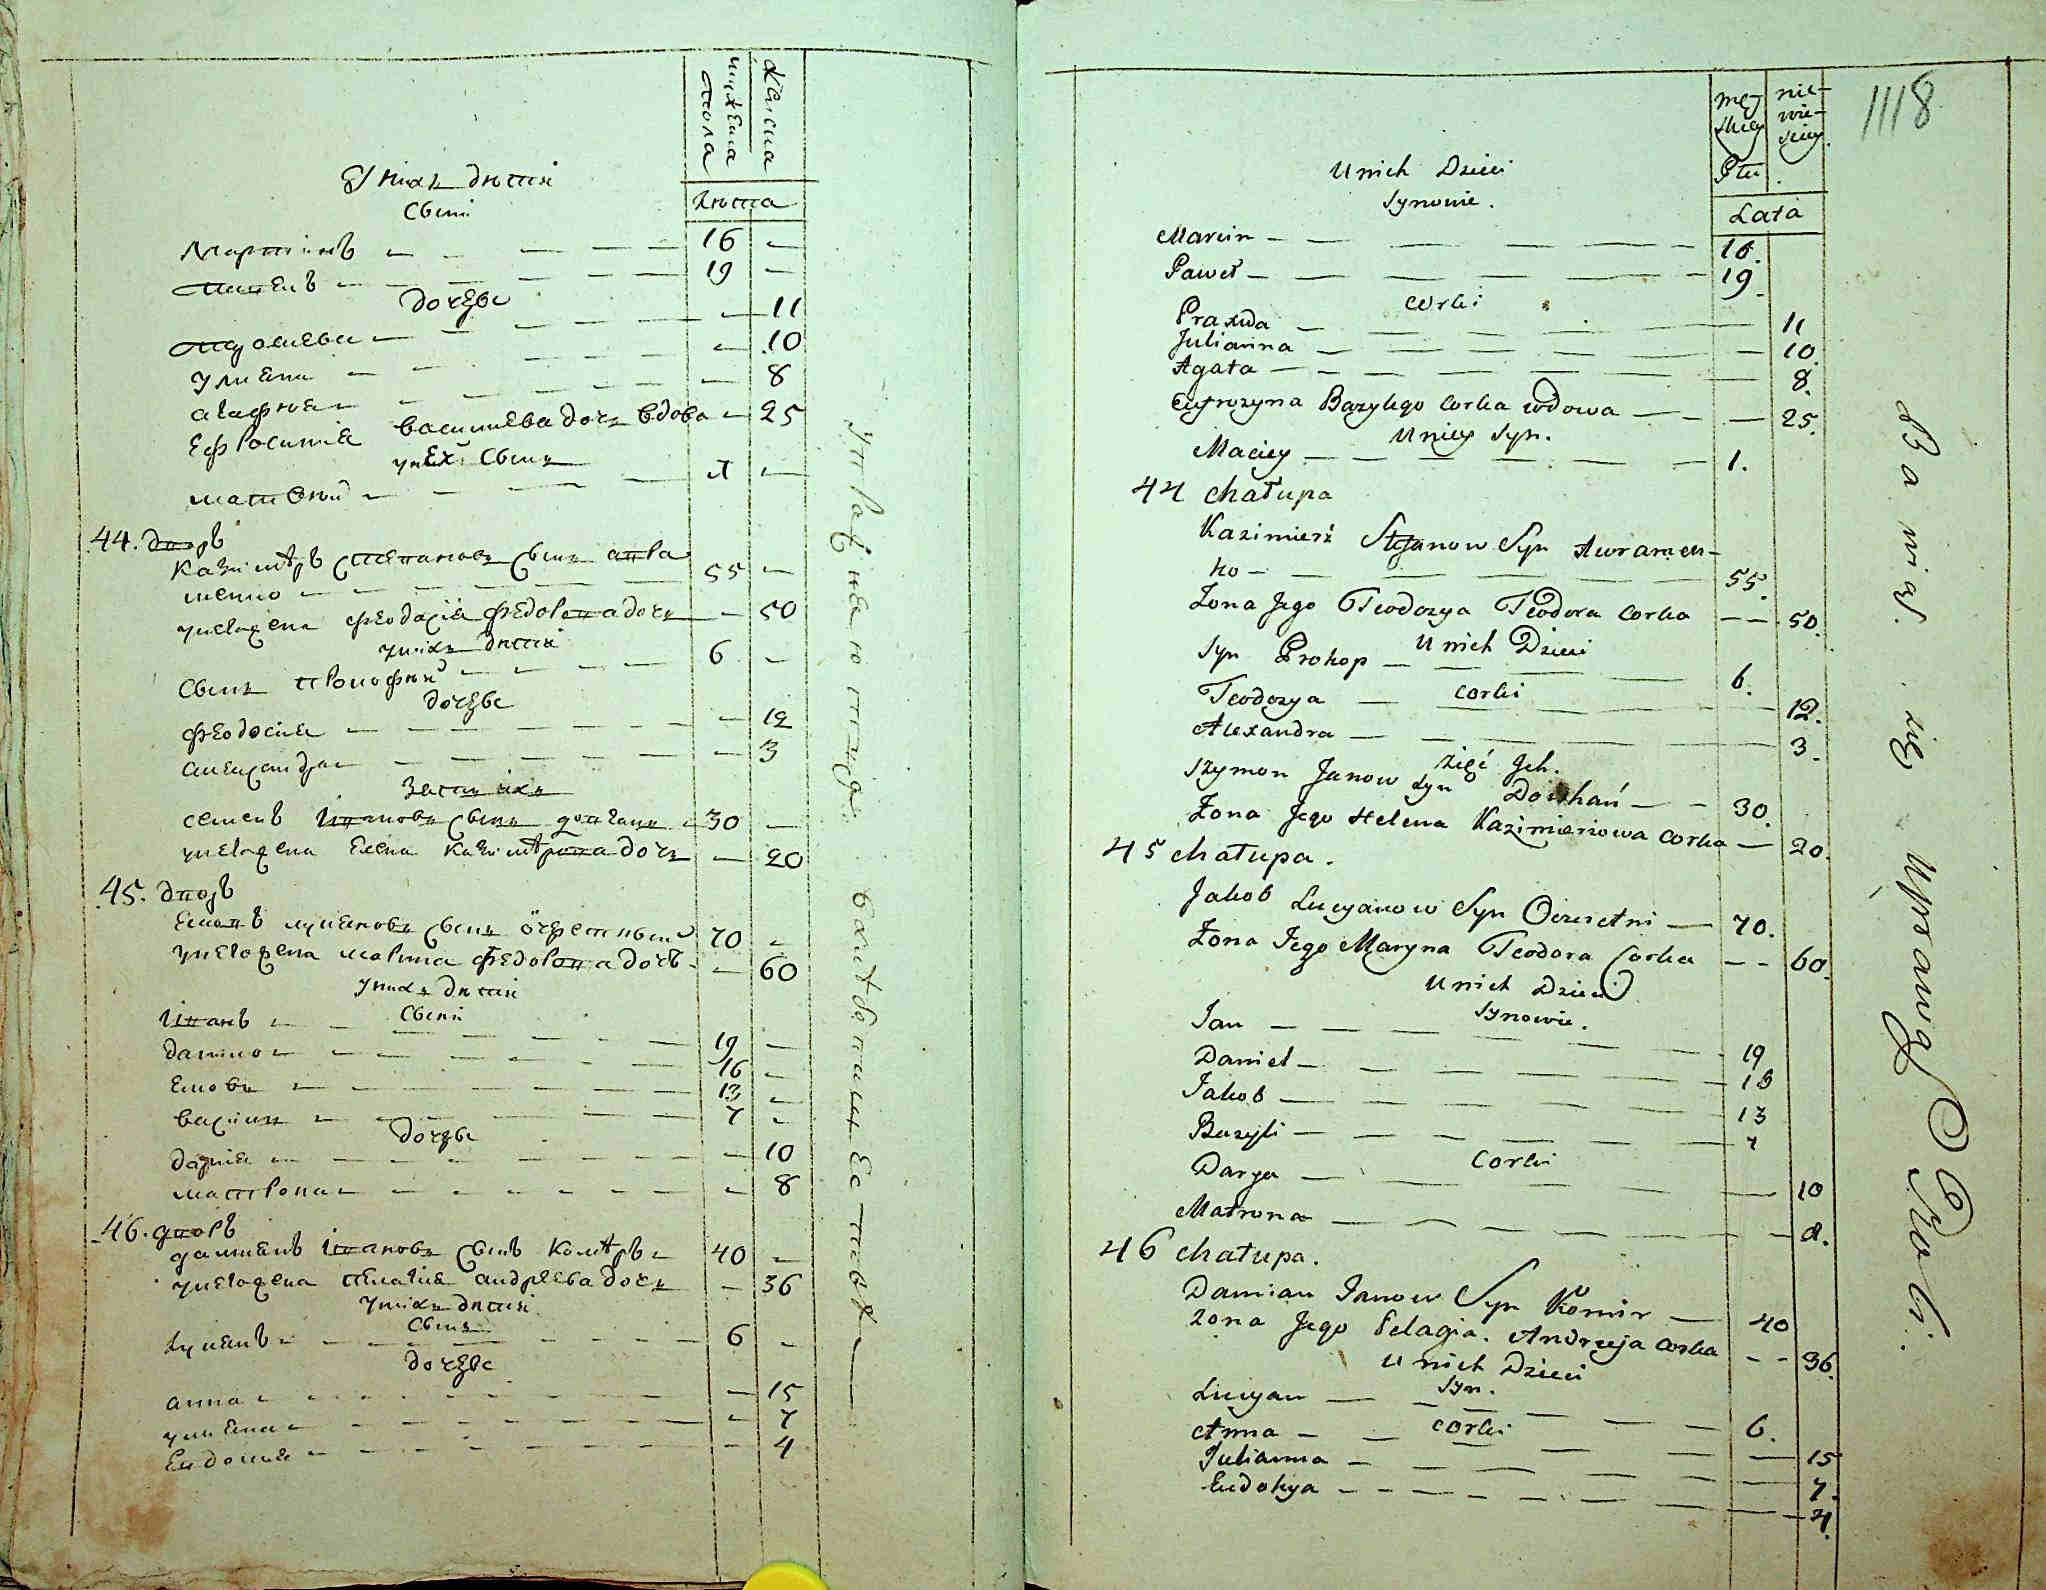 мужеска пола
женска
лѣта
У нихъ дѣти
Сыны
Мартинъ — — — — 16 —
Павелъ — — — — 19 —
дочери
— 11
Улиана — — — — — 10
Агафия — — — — 8
Ефросиния василиева дочь вдова — 25
у неё Сынъ
матвѣй — — — — 1 —
44. дворъ
Казимѣръ Степановъ Сынъ авра
менко — — — — 55 —
у него жена феодосия федорова дочь — 50
у нихъ дѣти
Сынъ прокофий — — — 6 —
дочери
феодосия — — — — — 12
александра — — — — — 3
зять ихъ
семенъ Ивановъ Сынъ довгань — 30 —
у него жена елена Казимѣрова дочь — 20
45. дворъ
Яковъ лукяновъ Сынъ очеретный 70 —
у него жена марина федорова дочь — — 60
у нихъ дѣти
Сыны
Иванъ — — — — 19 —
данило — — — — 16 —
Яковъ — — — — 13 —
василий — — — — 7 —
дочери
дария — — — — — 10
матрона — — — — — 8
46. дворъ
дамианъ Ивановъ Сынъ комѣръ — 40 —
у него жена пелагия андреева дочь — 36
у нихъ дѣти
Сынъ
лукянъ — — — — 6 —
дочери
анна — — — — — 15
улиана — — — — — 7
Евдокия — — — — — 4
męzkiey Płci
niewieściey
Lata
1118
U nich Dzieci
Synowie.
Marcin — — — — 16.
Paweł — — — — 19.
Corki
Praxeda — — — — 11
Julianna — — — — 10.
Agata — — — — 8.
Eufrozyna Bazylego Corka wdowa — — 25.
U niey Syn.
Maciey — — — — 1.
44 chałupa
Kazimierz Stefanow Syn Awramen-
ko — — — — 55.
Zona Jego Teodozya Teodora Corka — — 50.
U nich Dzieci
Syn Prokop — — — 6.
Corki
Teodozya — — — — 12.
Alexandra — — — — 3.
zięć Ich.
Szymon Janow Syn Dowhań — — 30.
Zona Jego Helena Kazimierowa Corka — 20.
45 chałupa.
Jakob Łucyanow Syn Oczeretni — 70.
Zona Jego Maryna Teodora Corka — — 60.
U nich Dzieci
Synowie.
Jan — — — — 19
Daniel — — — — 16
Jakob — — — — 13
Bazyli — — — — 7
Corki
Darya — — — — 10
Matrona — — — — 8.
46 chałupa.
Damian Janow Syn Komir — 40
Zona Jego Pelagia. Andrzeja Corka — — 36.
U nich Dzieci
Syn.
Łucyan — — — — 6.
Corki
Anna — — — — 15
Julianna — — — — 7.
Eudokya — — — — 4.
Bawiąc się Uprawą Roli.